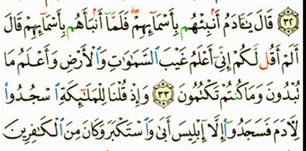 ٣٢ قَالَ يَٰٓـَٔادَمُ أَنۢبِئْهُم بِأَسْمَآئِهِمْ فَلَمَّآ أَنۢبَأَهُم بِأَسْمَآئِهِمْ قَالَ
أَلَمْ أَقُل لَّكُمْ إِنِّىٓ أَعْلَمُ غَيْبَ ٱلسَّمَٰوَٰتِ وَٱلْأَرْضِ وَأَعْلَمُ مَا
تُبْدُونَ وَمَا كُنتُمْ تَكْتُمُونَ ٣٣ وَإِذْ قُلْنَا لِلْمَلَٰٓئِكَةِ ٱسْجُدُوا۟
لِـَٔادَمَ فَسَجَدُوٓا۟ إِلَّآ إِبْلِيسَ أَبَىٰ وَٱسْتَكْبَرَ وَكَانَ مِنَ ٱلْكَٰفِرِينَ